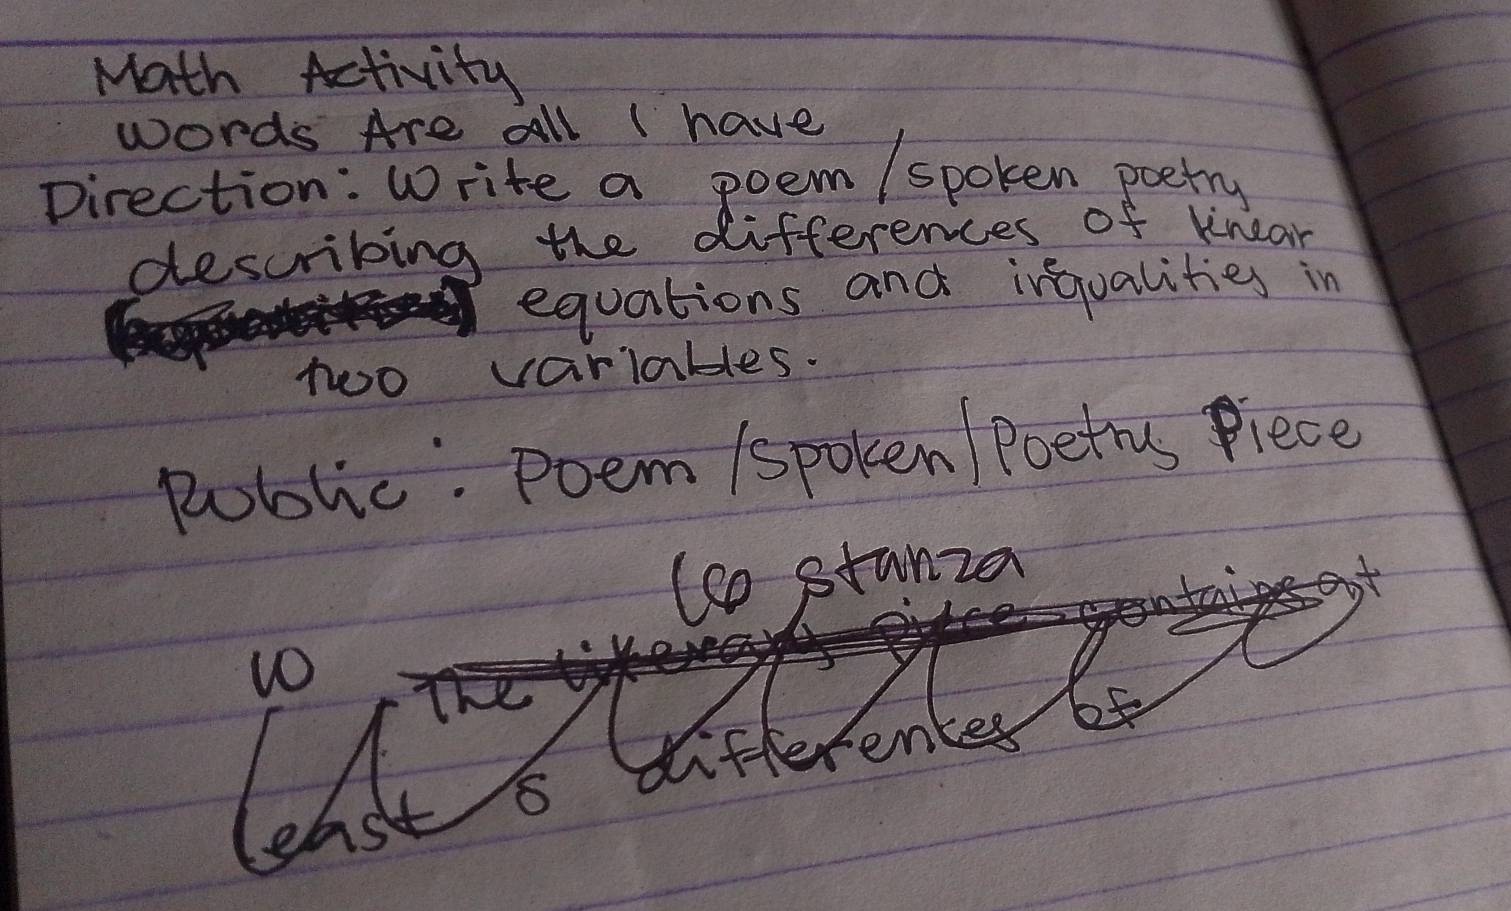 Math Activity
Words Are all I have
Direction: Write a poem/spoken poetry
describing the differences of linear
equations and inequalities in
two variables.
Public: Poem/Spoken/Poetry Piece
stanza
10
The literary piece contains at
least 5 differences of